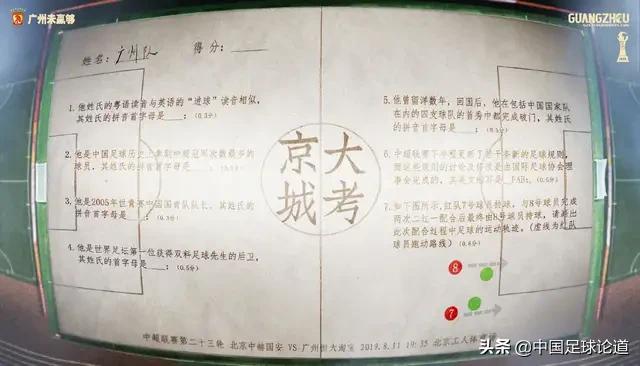 广州未赢够
GUANGZHOU
姓名：广州队 得分：
1. 他姓氏的粤语读音与英语的“进球”读音相似，
其姓氏的拼音首字母是__；（0.5分）
2. 他是中国足球历史上
冠军次数最多的
球员，其姓氏的拼音首字母是__；（0.5分）
3. 他是2005年世青赛中国国青队队长，其姓氏的
拼音首字母是__；（0.5分）
4. 他是世界足坛第一位获得双料足球先生的后卫，
其姓氏的首字母是__；（0.5分）
大考
京城
5. 他曾留洋数年，回国后，他在包括中国国家队
在内的四支球队的首秀中都完成破门，其姓
氏的拼音首字母是__；（0.5分）
6. 中超联赛下半程更新了若干条新的足球规则，
国际足球协会理
事会完成的，其英文缩写是_FAB；（0.5分）
7. 如下图所示，红队7号球员持球，与8号球员完成
两次二过一配合后最终由8号球员持球，请画出
此次配合过程中足球的运动轨迹。（虚线为红队
球员跑动路线）（0.4分）
8
7
中超联赛第二十三轮 北京中赫国安 VS 广州恒大淘宝 2019.8.11 19:35 北京工人体育场
头条 @中国足球论道